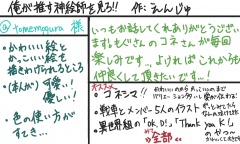 俺が推す神絵師を見ろ!! 作:えんじゅ
tomemegura 様
・かわいい絵と
かっこいい絵も
描きわけられるところ
・(本人が)可愛い!
優しい!
・色の使い方が
すてき…
いつもお話してくれありがとうござい
ますもぐさんのコネさんが毎回
楽しみです…。よければこれからも
仲良くして頂きたいです…!
オススメ
コネシマ!!
・戦車とメンバー5人のイラスト
・異世界組の「OK,D!」「Thank you K!」
の
⇒全部